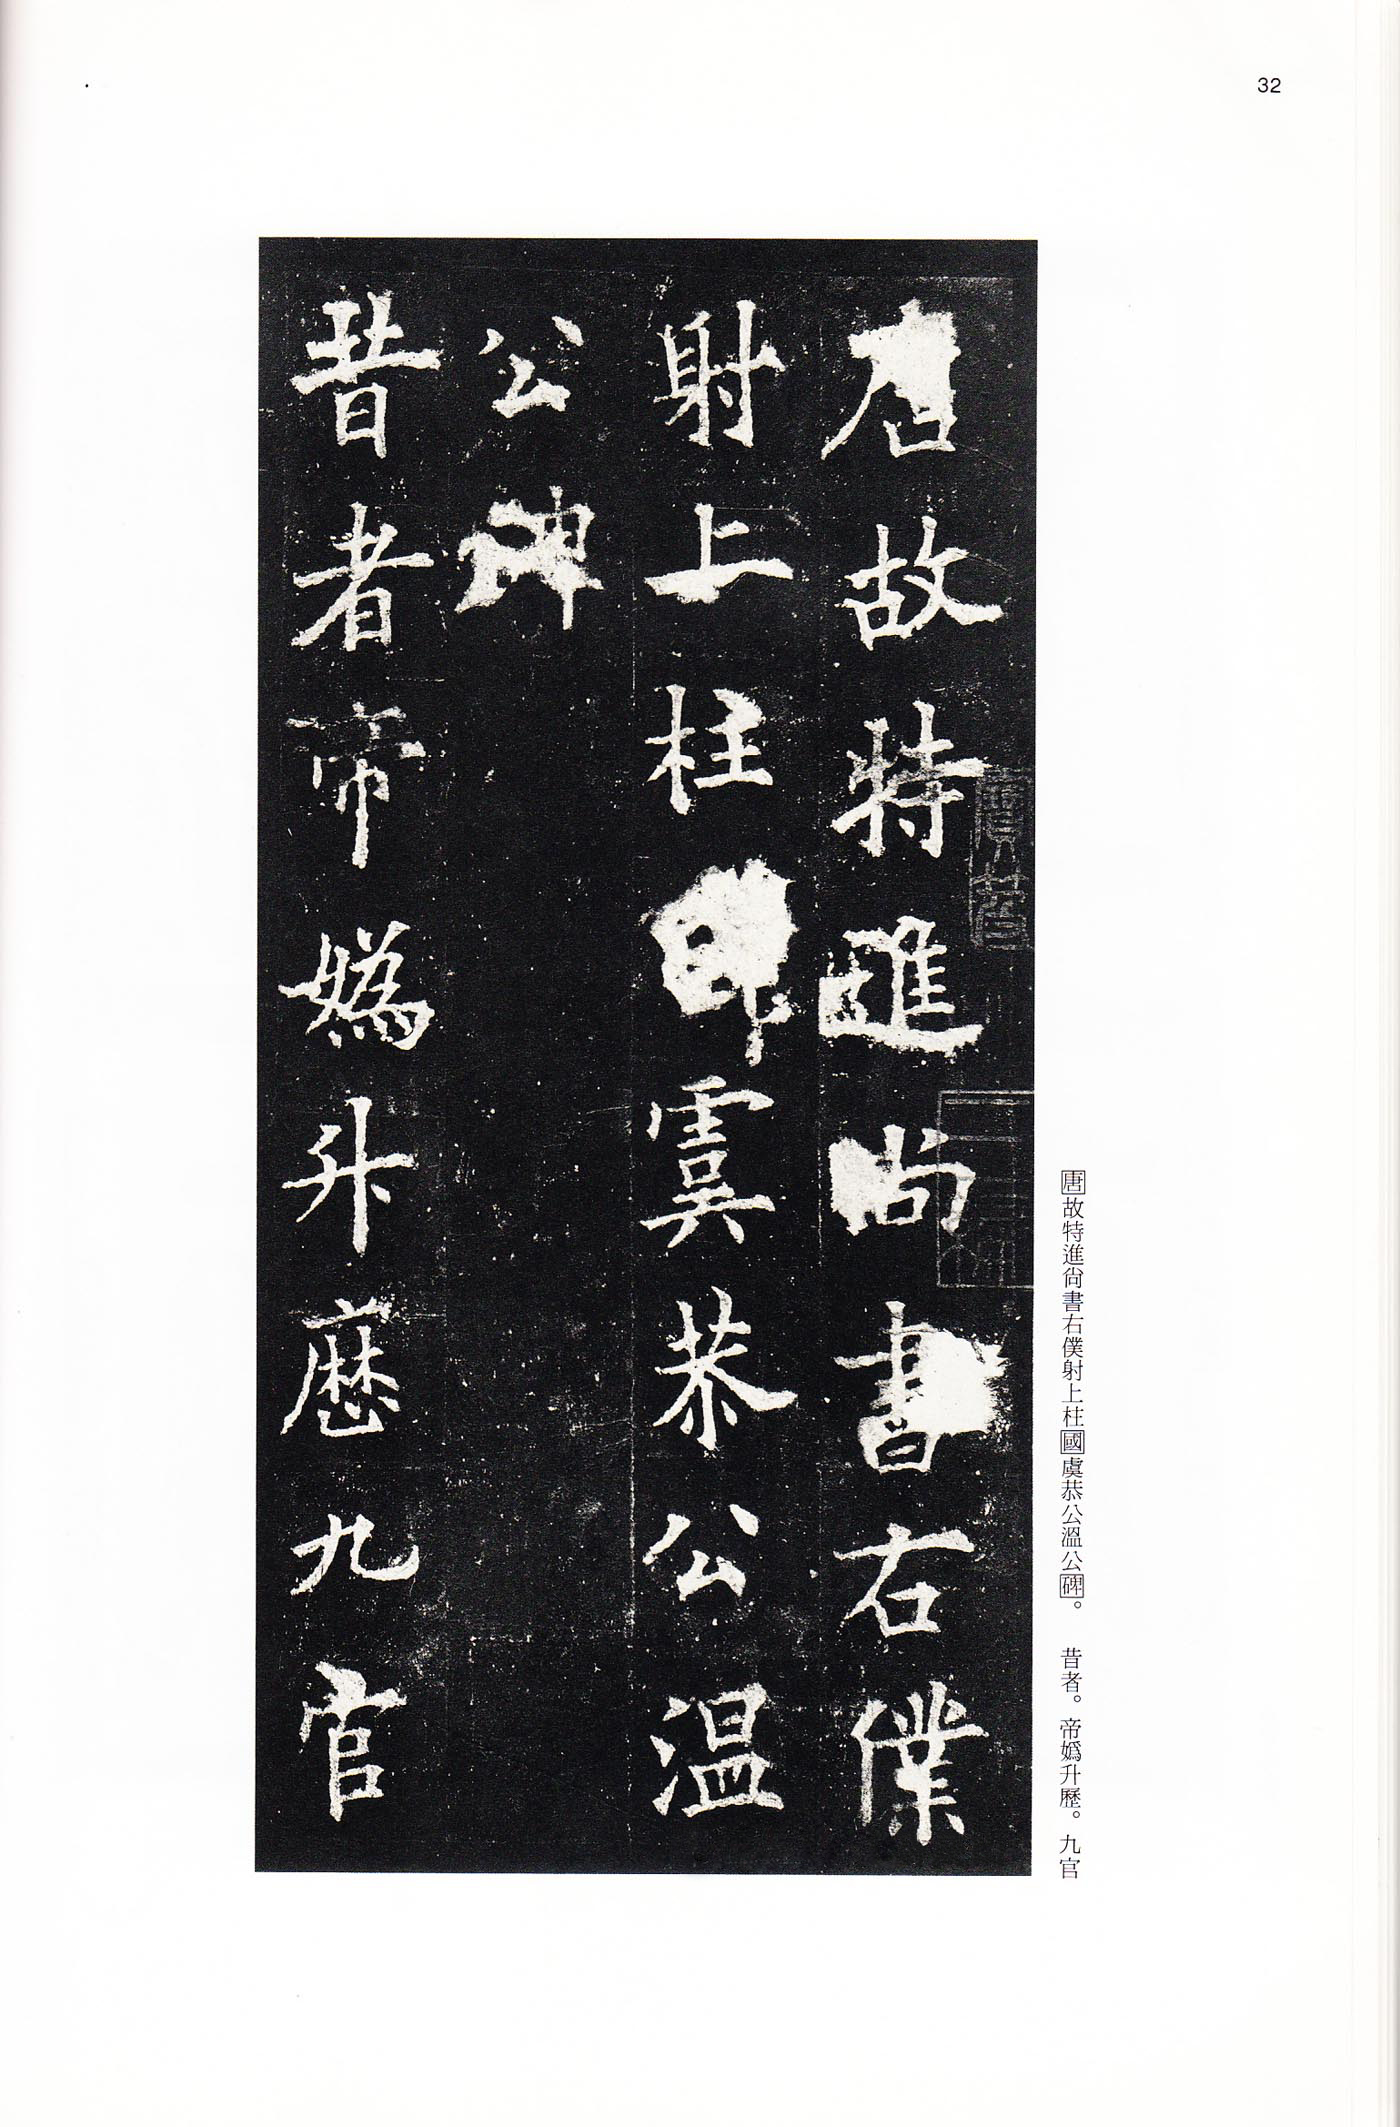 32
唐故特進尚書右僕
射上柱國虞恭公溫
公碑
昔者帝嬀升歷九官
唐故特進尙書右僕射上柱國虞恭公溫公碑。 昔者。帝嬀升歷。九官